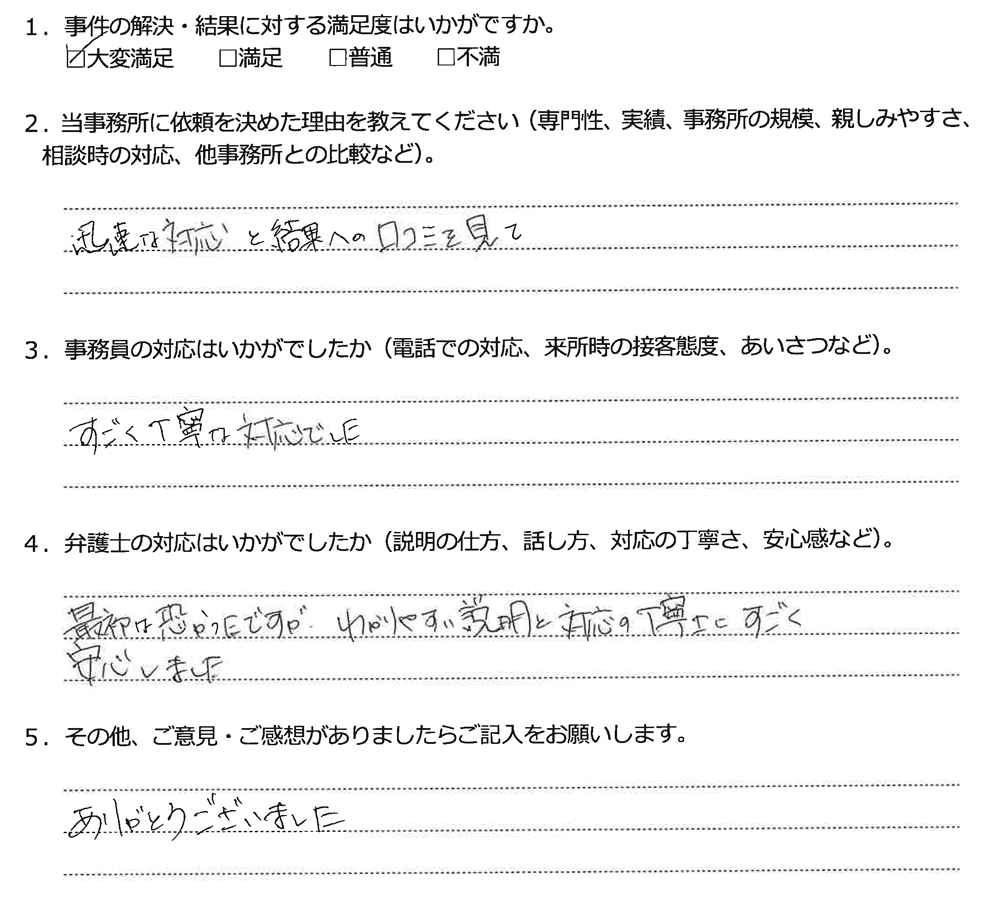 1．事件の解決・結果に対する満足度はいかがですか。
☑大変満足　□満足　□普通　□不満
2．当事務所に依頼を決めた理由を教えてください（専門性、実績、事務所の規模、親しみやすさ、
相談時の対応、他事務所との比較など）。
迅速な対応と結果への口コミを見て
3．事務員の対応はいかがでしたか（電話での対応、来所時の接客態度、あいさつなど）。
すごく丁寧な対応でした
4．弁護士の対応はいかがでしたか（説明の仕方、話し方、対応の丁寧さ、安心感など）。
最初は恐かったですが、わかりやすい説明と対応の丁寧さにすごく
安心しました
5．その他、ご意見・ご感想がありましたらご記入をお願いします。
ありがとうございました